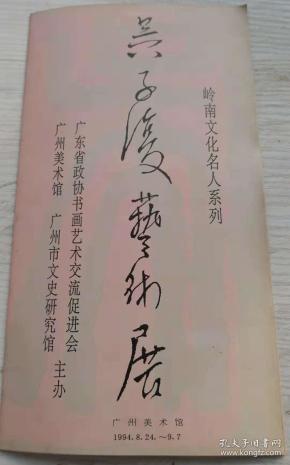 岭南文化名人系列
吴子復藝術展
广东省政协书画艺术交流促进会
广州美术馆 广州市文史研究馆 主办
广州美术馆
1994.8.24.~9.7
孔夫子旧书网